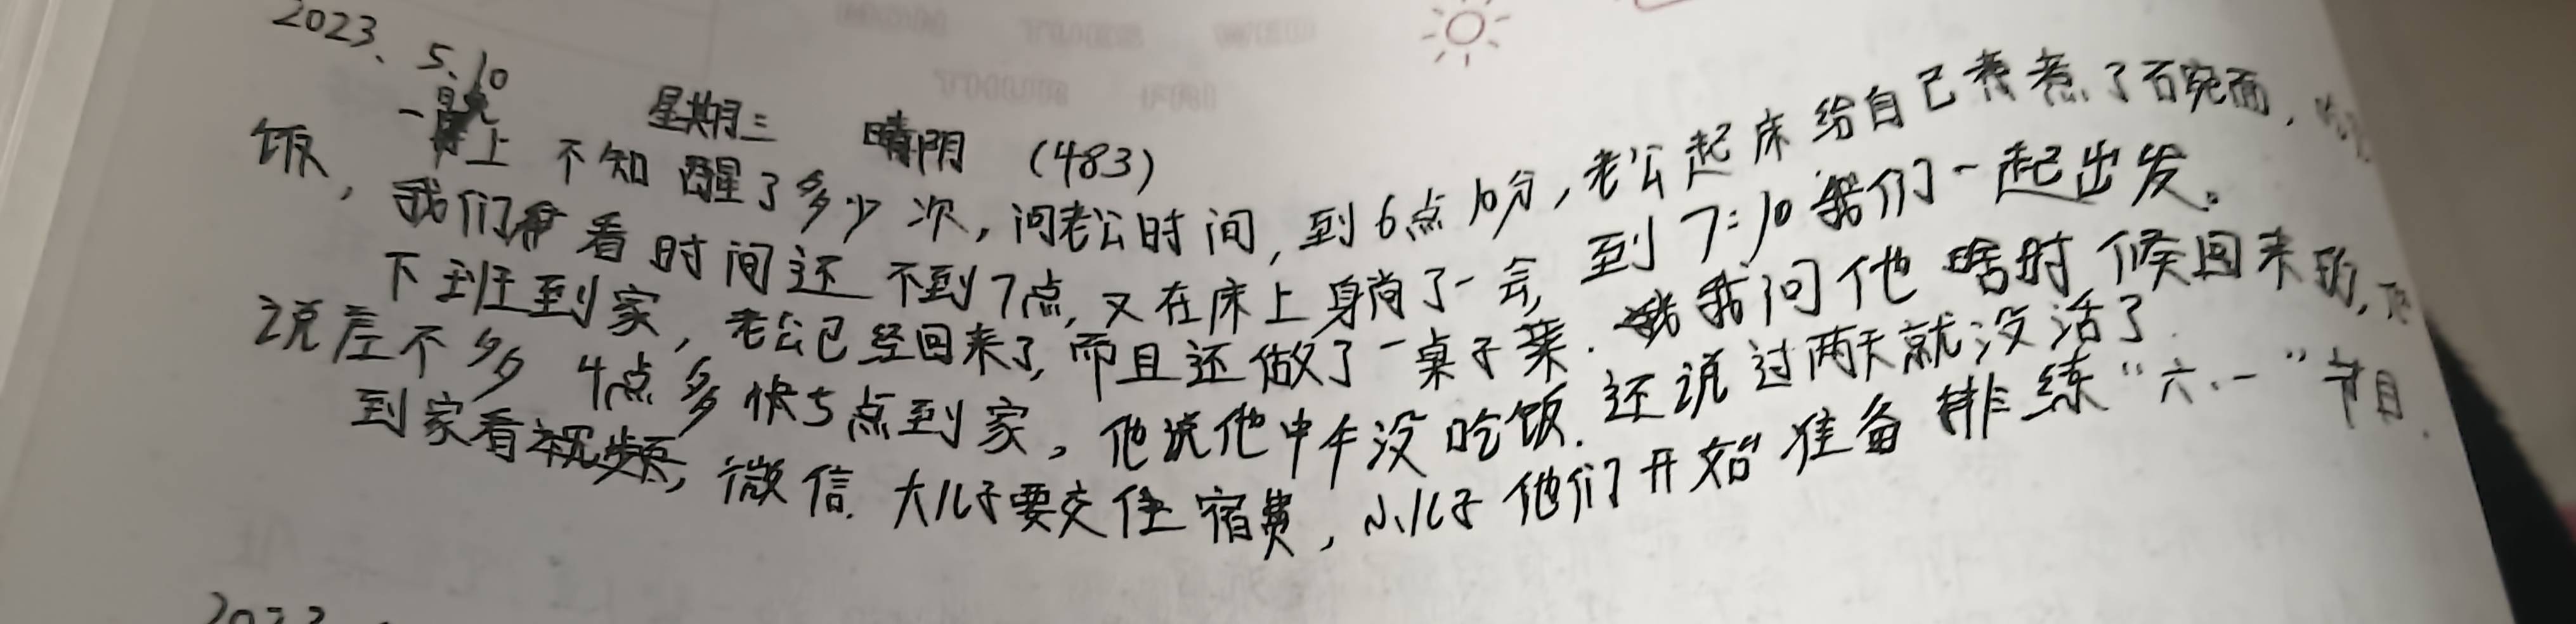 2023、5.10 星期三 晴阴 (483)
一晚上不知醒了多少次,问老公时间,到6点10分,老公起床给自己煮了碗面,
饭,我们看时间还不到7点,又在床上躺了一会,到7:10我们一起出发。
下班到家,老公已经回来了,而且还做了一桌子菜.我问他啥时候回来的,
说差不多4点多快5点到家。他说他中午没吃饭.还说过两天就没活了.
到家看视频,微信.大儿子要交住宿费,小儿子他们开始准备排练“六.一”节目.